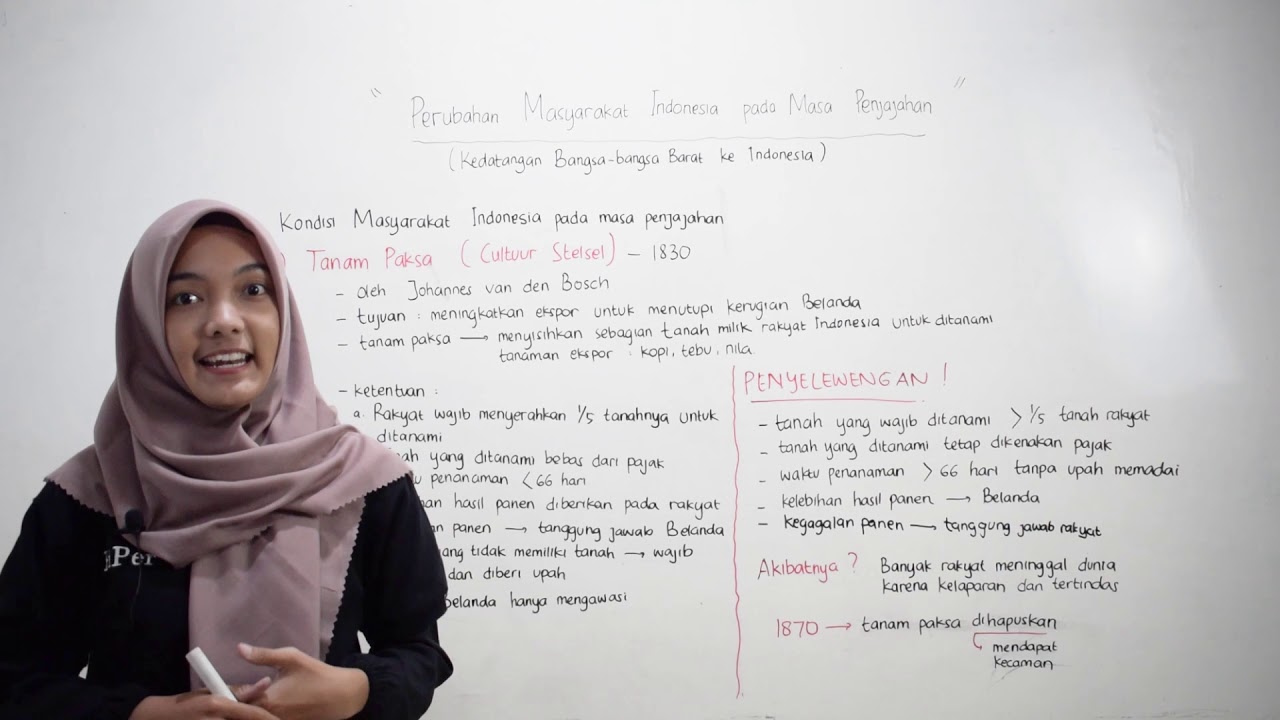 " Perubahan Masyarakat Indonesia pada Masa Penjajahan "
(Kedatangan Bangsa-bangsa Barat ke Indonesia)
Kondisi Masyarakat Indonesia pada masa penjajahan
) Tanam Paksa (Cultuur Stelsel) – 1830
- oleh Johannes van den Bosch
- tujuan : meningkatkan ekspor untuk menutupi kerugian Belanda
- tanam paksa → menyisihkan sebagian tanah milik rakyat Indonesia untuk ditanami
tanaman ekspor : kopi, tebu, nila.
- ketentuan :
a. Rakyat wajib menyerahkan 1/5 tanahnya untuk
ditanami
yang ditanami bebas dari pajak
penanaman < 66 hari
hasil panen diberikan pada rakyat
panen → tanggung jawab Belanda
tidak memiliki tanah → wajib
dan diberi upah
Belanda hanya mengawasi
PENYELEWENGAN !
- tanah yang wajib ditanami > 1/5 tanah rakyat
- tanah yang ditanami tetap dikenakan pajak
- waktu penanaman > 66 hari tanpa upah memadai
- kelebihan hasil panen → Belanda
- kegagalan panen → tanggung jawab rakyat
Akibatnya ? Banyak rakyat meninggal dunia
karena kelaparan dan tertindas
1870 → tanam paksa dihapuskan
mendapat
kecaman